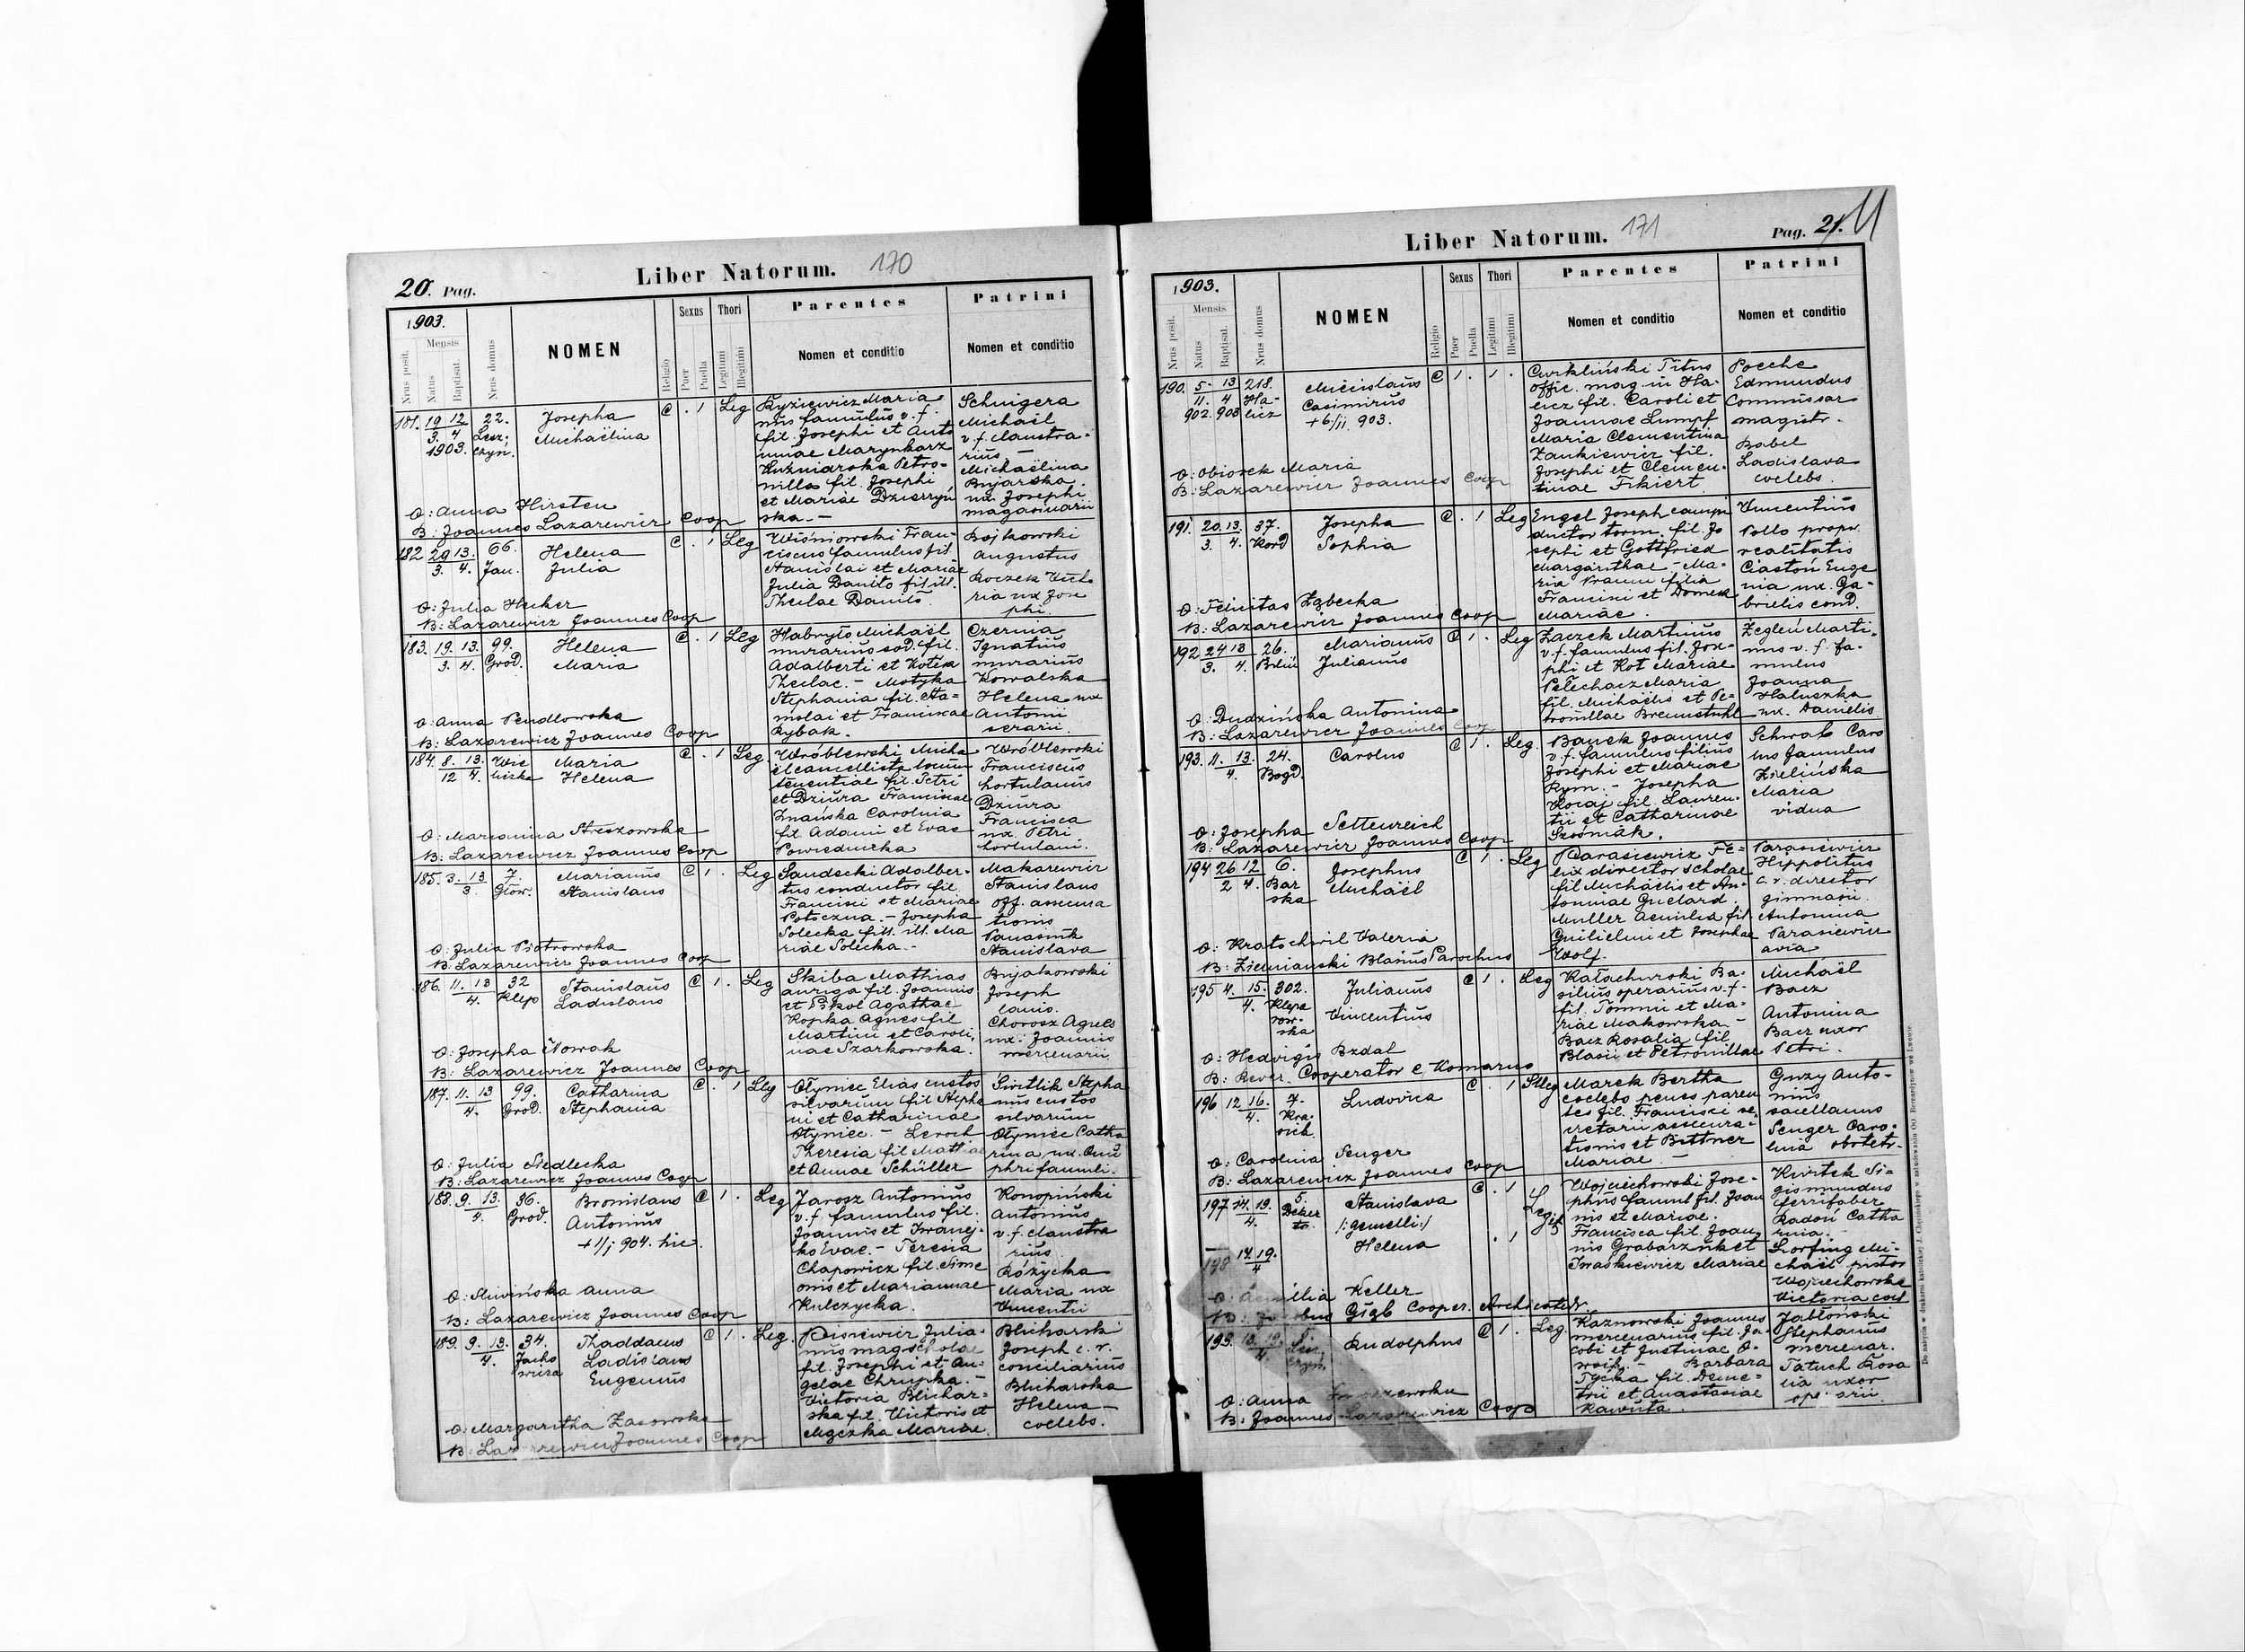 20. Pag.
Liber Natorum.
170
1903.
Nrus posit.
Mensis
Natus
Baptisat.
Nrus domus
NOMEN
Religio
Sexus
Puer
Puella
Thori
Legitimi
Illegitimi
Parentes
Nomen et conditio
Patrini
Nomen et conditio
181. 19 12 22. Josepha C . 1 Leg
3. 4 Michaëlina
1903.
nus famulus v. f.
fil. Josephi et Anto
Petro-
nilla fil. Josephi
et Mariae
ska.-
Michaël
v. f. claustra-
rius -
Michaëlina
ux Josephi
magasinarii
O: Anna Hirsten
B: Joannes Lazarewicz Coop
182 29 13. 66. Helena C . 1 Leg
3. 4. Jan. Julia
Wiśniowski Fran-
ciscus famulus fil.
Stanislai et Mariae
Julia Daniło fil. ill.
Theclae Daniło.
Augustus
Roczek Victo
ria ux Jose
phi.
O: Julia Hecker
B: Lazarewicz Joannes Coop
183. 19. 13. 99. Helena C . 1 Leg
3. 4. Grod. Maria
Habryło Michaël
murarius sod. fil.
Adalberti et
Theclae. - Motyka
Stephania fil. Sta=
nislai et Franciscae
Rybak.
Czernia
Ignatius
murarius
Kowalska
Helena ux
Antonii
serarii.
O: Anna Pendlowska
B: Lazarewicz Joannes Coop
184. 8. 13. Maria C . 1 Leg.
12 4. Helena
Wróblewski Micha
tenentiae fil. Petri
et Dziura Franciscae
Znańska Carolina
fil. Adami et Evae
Wróblewski
Franciscus
hortulanus
Dziura
Francisca
ux. Petri
hortulani.
O: Marianna
B: Lazarewicz Joannes Coop
185. 3. 13. 7. Marianus C 1 . Leg
3. Głow. Stanislaus
Sandecki Adalber-
tus conductor fil.
Francisci et Mariae
Potoczna. - Josepha
Solecka fil. ill. Ma
riae Solecka.-
Makarewicz
Stanislaus
off. assecura
tionis
Stanislava
O: Julia Piotrowska
B: Lazarewicz Joannes Coop
186. 11. 13 32 Stanislaus C 1 . Leg
4. Klep Ladislaus
Skiba Mathias
auriga fil. Joannis
et Agathae
Kopka Agnes fil
Martini et Caroli,
nae Szarkowska.
Joseph
lanio.
Chorosz Agnes
ux. Joannis
mercenarii
O: Josepha Nowak
B: Lazarewicz Joannes Coop
187. 11. 13 99. Catharina C . 1 Leg
4. Grod. Stephania
Ołyniec Elias custos
silvarum fil Stepha
ni et Catharinae
Ołyniec. -
Theresia fil Mathiae
et Annae Schüller
Switlik Stepha
nus custos
silvarum
Ołyniec Catha
rina ux. Onu
phri famuli.
O: Julia Siedlecka
B: Lazarewicz Joannes Coop
188. 9. 13. 36. Bronislaus C 1 . Leg
4. Grod. Antonius
+ 1/j 904. hic.
Jarosz Antonius
v. f. famulus fil.
Joannis et Iwaney-
ko Evae. - Teresia
Chapowicz fil. Sime
onis et Mariannae
Kulczycka.
Konopiński
Antonius
v. f. claustra
rius
Różycka
Maria ux
Vincentii
O: Sliwińska Anna
B: Lazarewicz Joannes Coop
189. 9. 13. 34. Thaddaeus C 1 . Leg.
4. Ladislaus
Eugenius
Julia-
nus mag scholae
fil. Josephi et An-
gelae Chrupka. -
Victoria Blichar-
ska fil. Victoris et
Mączka Mariae.
Blicharski
Joseph c. r.
conciliarius
Blicharska
Helena -
coelebs.
O: Margaritha Zasowska
B: Joannes Coop
Liber Natorum.
171
Pag. 21.
1903.
Nrus posit.
Mensis
Natus
Baptisat.
Nrus domus
NOMEN
Religio
Sexus
Puer
Puella
Thori
Legitimi
Illegitimi
Parentes
Nomen et conditio
Patrini
Nomen et conditio
190. 5. 13 218. Miecislaus C 1 . 1 .
11. 4 Ha- Casimirus
902. 903 licz + 6/ii 903.
Cwikliński Titus
offic. mag in Ha-
licz fil. Caroli et
Joannae Lumpf
Maria Clementina
Zankiewicz fil.
Josephi et Clemen-
tinae Fikiert.
Poeche
Edmundus
Commissar
magistr.
Babel
Ladislava
coelebs.
O: Obiozek Maria
B: Lazarewicz Joannes Coop
191. 20. 13. 37. Josepha C . 1 Leg
3. 4. Kord Sophia
Engel Joseph
ductor torm. fil. Jo
sephi et Gottfried
Margarithae - Ma-
ria filia
Francisci et
Mariae.
Vincentius
Pollo propr.
realitatis
Ciastoń Euge
nia ux. Ga-
brielis cond.
O: Felicitas Ząbecka
B: Lazarewicz Joannes Coop
192 24 13 26. Marianus C 1 . Leg
3. 4. Julianus
Zaczek Martinus
v. f. famulus fil. Jose-
phi et Kot Mariae
Pełechacz Maria
fil. Michaëlis et Pe-
tronillae Bremstuhl
Żegleń Marti-
nus v. f. fa-
mulus
Joanna
Haluszka
ux. Danielis.
O: Dudzińska Antonina
B: Lazarewicz Joannes Coop
193. 11. 13. 24. Carolus C 1 . Leg.
4. Bogd.
Banek Joannes
v. f. famulus filius
Josephi et Mariae
Rym. - Josepha
Kocaj fil. Lauren-
tii et Catharinae
Schwab Caro
lus famulus
Zielińska
Maria
vidua
O: Josepha Settenreich
B: Lazarewicz Joannes Coop
194 26 12 6. Josephus C 1 . Leg
2 4. Bar Michaël
ska
Parasiewicz Fe=
lix director scholae
fil Michaëlis et An-
toninae Guelard.
Muller Aemilia fil.
Guilielmi et Josephae
Wolf.
Parasiewicz
Hippolitus
c. r. director
gimnasii.
Antonina
Parasiewicz
avia.
O: Kratochwil Valeria
B: Ziemianski Blasius Parochus
195 4. 15. 302. Julianus C 1 . Leg
4. Klepa Vincentius
row-
ska
Kałachurski Ba-
silius operarius v. f.
fil. Tommii et Ma-
riae Makowska -
Bacz Rosalia fil.
Blasii et Petronillae
Michaël
Bacz
Antonina
Bacz uxor
Petri.
O: Hedvigis Bzdal
B: Rever. Cooperator e Komarno
196 12. 16. 7. Ludovica C . 1 Illeg
4. Kra-
sick.
Marek Bertha
coelebs penes paren
tes fil. Francisci se,
cretarii assecura-
tionis et Bittner
Mariae -
Guzy Anto-
nius
sacellanus
Senger Caro-
lina obstetr.
O: Carolina Senger
B: Lazarewicz Joannes Coop
197 14. 19. 5. Stanislava C . 1 Leg
4. Deker /:gemelli:/
to.
198 14. 19. Helena . 1
4
Wojciechowski Jose-
phus famul fil. Joan
nis et Mariae.
Francisca fil. Joan,
nis Grabarz et
Iwaskiewicz Mariae
Kwitek Si-
gismundus
ferrifaber
Radoń Catha
rina. -
Lorfing Mi-
chaël pistor
Wojciechowska
Victoria coel
O: Aemilia Keller
B: Gizb Cooper. Archicatedr.
199. 13. 19. Rudolphus C 1 . Leg.
4.
Kaznowski Joannes
mercenarius fil. Ja-
cobi et Justinae
Barbara
fil. Deme-
trii et Anastasiae
Jabłoński
Stephanus
mercenar.
Tatuch Rosa
lia uxor
O: Anna
B: Joannes Lazarewicz Coop